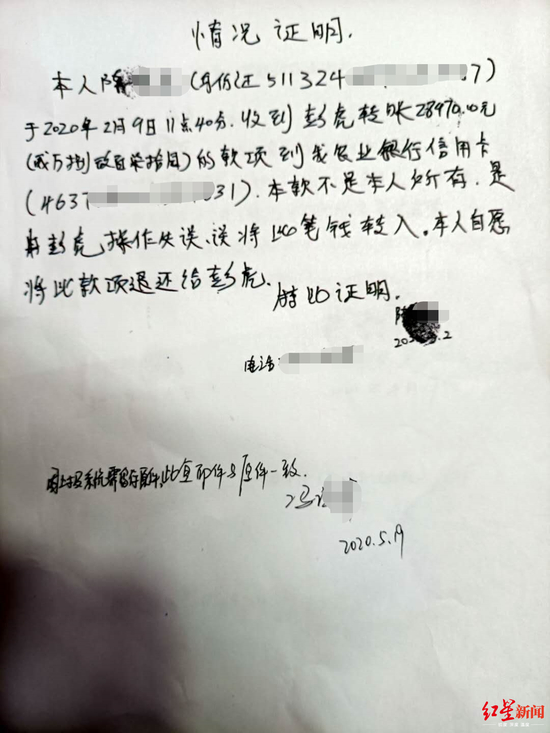 情况证明.
本人陈 (身份证511324 7)
于2020年2月9日11点40分.收到彭虎转账28970.00元
(贰万捌 玖百柒拾圆)的款项到我农业银行信用卡
(4637 031).本款不是本人所有.是
彭虎操作失误、误将此笔钱转入.本人自愿
将此款项退还给彭虎、
特此证明.
电话:
此复印件与原件一致.
冯
2020.5.19
红星新闻